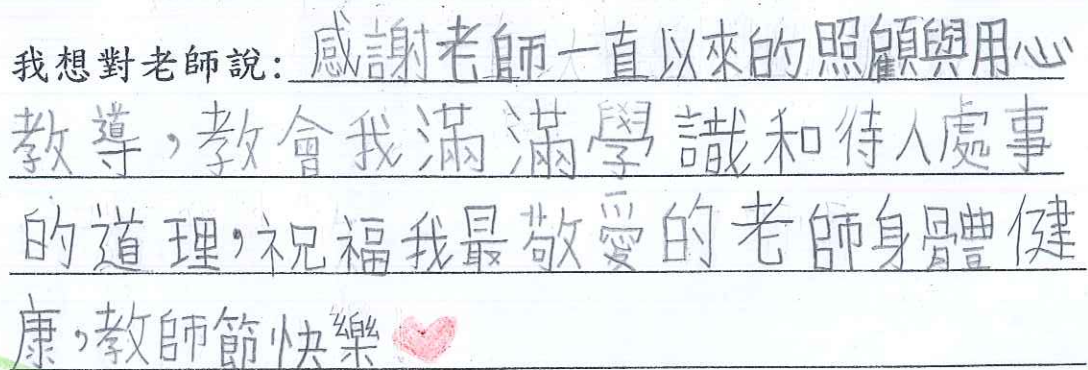 我想對老師說:感謝老師一直以來的照顧與用心
教導,教會我滿滿學識和待人處事
的道理,祝福我最敬愛的老師身體健
康,教師節快樂